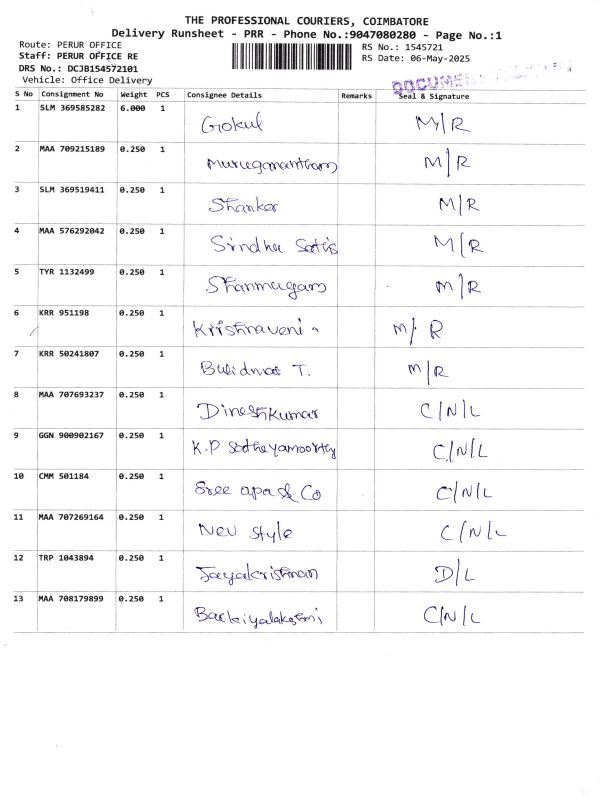 THE PROFESSIONAL COURIERS, COIMBATORE
Delivery Runsheet - PRR - Phone No.:9047080280 - Page No.:1
Route: PERUR OFFICE
Staff: PERUR OFFICE RE
DRS No.: DCJB154572101
Vehicle: Office Delivery
RS No.: 1545721
RS Date: 06-May-2025
S No Consignment No Weight PCS Consignee Details Remarks Seal & Signature
1 SLM 369585282 6.000 1 Gokul M/R
2 MAA 709215189 0.250 1 Murugananthan M/R
3 SLM 369519411 0.250 1 Shanker M/R
4 MAA 576292042 0.250 1 Sindhu Satis M/R
5 TYR 1132499 0.250 1 Shanmugam M/R
6 KRR 951198 0.250 1 Krishnaveni M/R
7 KRR 50241807 0.250 1 T. M/R
8 MAA 707693237 0.250 1 Dineshkumar C/N/L
9 GGN 900902167 0.250 1 K.P C/N/L
10 CMM 501184 0.250 1 Sree & Co C/N/L
11 MAA 707269164 0.250 1 New Style C/N/L
12 TRP 1043894 0.250 1 Jayakrishnan D/L
13 MAA 708179899 0.250 1 C/N/L